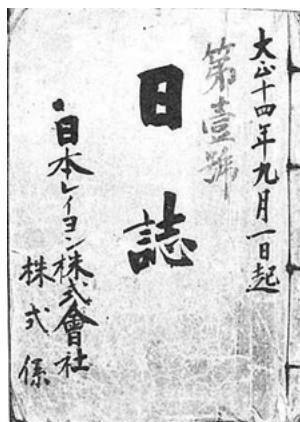 大正十四年九月一日起
第壹號
日誌
日本レイヨン株式會社
株式係